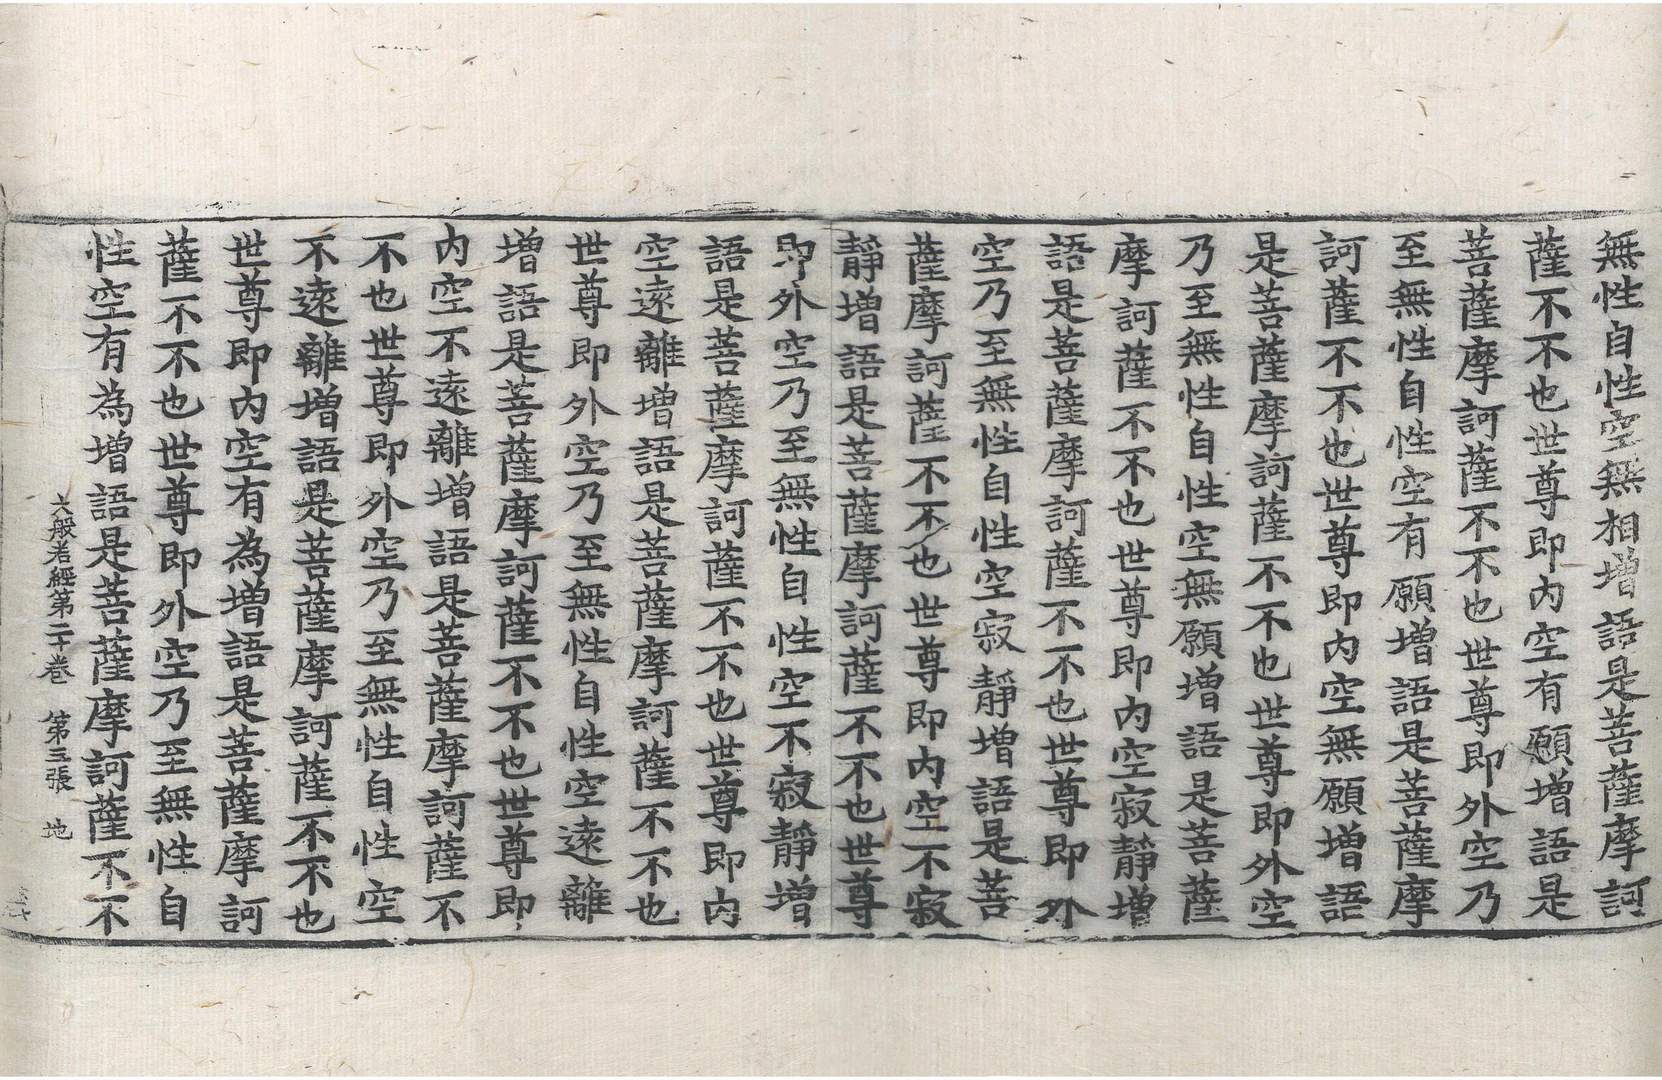 無性自性空無相增語是菩薩摩訶
薩不不也世尊即内空有願增語是
菩薩摩訶薩不不也世尊即外空乃
至無性自性空有願增語是菩薩摩
訶薩不不也世尊即内空無願增語
是菩薩摩訶薩不不也世尊即外空
乃至無性自性空無願增語是菩薩
摩訶薩不不也世尊即内空寂靜增
語是菩薩摩訶薩不不也世尊即外
空乃至無性自性空寂靜增語是菩
薩摩訶薩不不也世尊即内空不寂
靜增語是菩薩摩訶薩不不也世尊
即外空乃至無性自性空不寂靜增
語是菩薩摩訶薩不不也世尊即内
空遠離增語是菩薩摩訶薩不不也
世尊即外空乃至無性自性空遠離
增語是菩薩摩訶薩不不也世尊即
内空不遠離增語是菩薩摩訶薩不
不也世尊即外空乃至無性自性空
不遠離增語是菩薩摩訶薩不不也
世尊即内空有為增語是菩薩摩訶
薩不不也世尊即外空乃至無性自
性空有為增語是菩薩摩訶薩不不
大般若經第二十卷 第五張 地